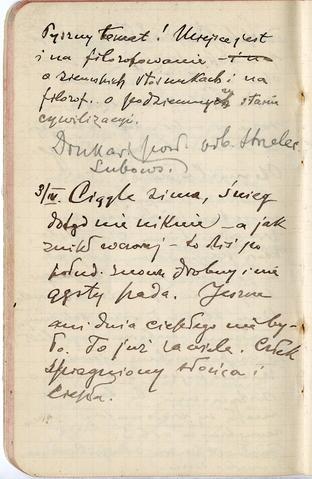 Pyszny temat! Miejsce jest
i na filozofowanie
o ziemskich stosunkach i na
filozof. o podziemnych starej
cywilizacyi.
Drukarz
Lubows.
3/IV. Ciągle zima, śnieg
dotąd nie niknie – a jak
znikł wczoraj – to dziś po
połud. znowu drobny i nie
gęsty pada. Jeszcze
ani dnia ciepłego nie by-
ło. To już za wiele. Człek
spragniony słońca i
ciepła.